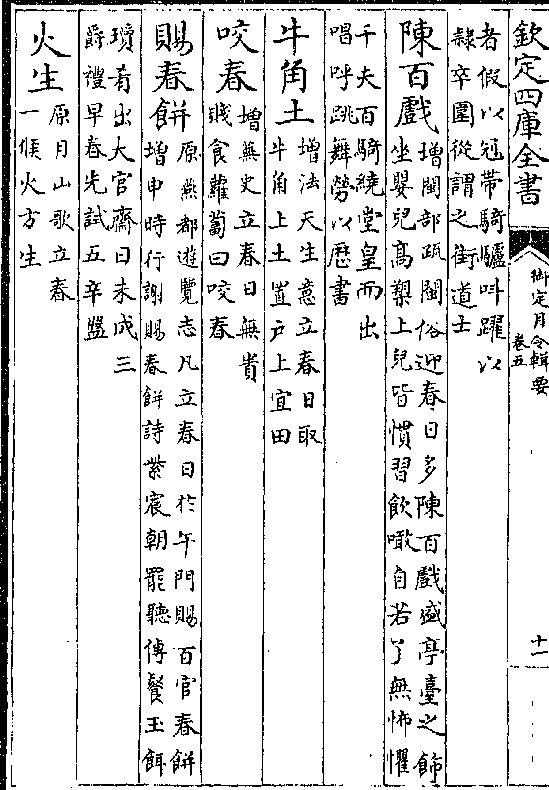 欽定四庫全書
御定月令輯要
卷五
十一
者假以冠帶騎驢叫躍以
隸卒圍從謂之街道士
陳百戲
增閩部疏閩俗迎春日多陳百戲盛亭臺之飾
坐嬰兒高槊上兒皆慣習飲噉自若了無怖懼
千夫百騎繞堂皇而出
唱呼跳舞勞以歷書
牛角土
增法天生意立春日取
牛角上土置户上宜田
咬春
增無史立春日無貴
賤食蘿蔔曰咬春
賜春餅
原燕都遊覽志凡立春日於午門賜百官春餅
增申時行謝賜春餅詩紫宸朝罷聽傳餐玉餌
瓊肴出大官齋日未成三
爵禮早春先試五辛盤
火生
原月山歌立春
一候火方生